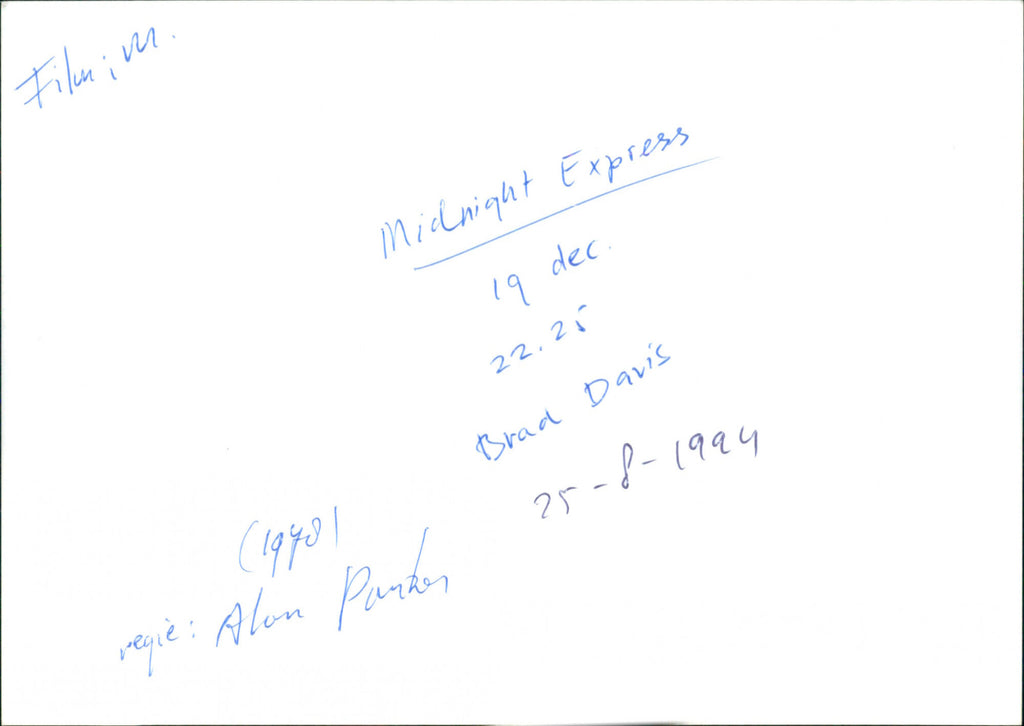 Film; M.
Midnight Express
19 dec.
22.25
Brad Davis
25-8-1994
(1978)
regie: Alan Parker